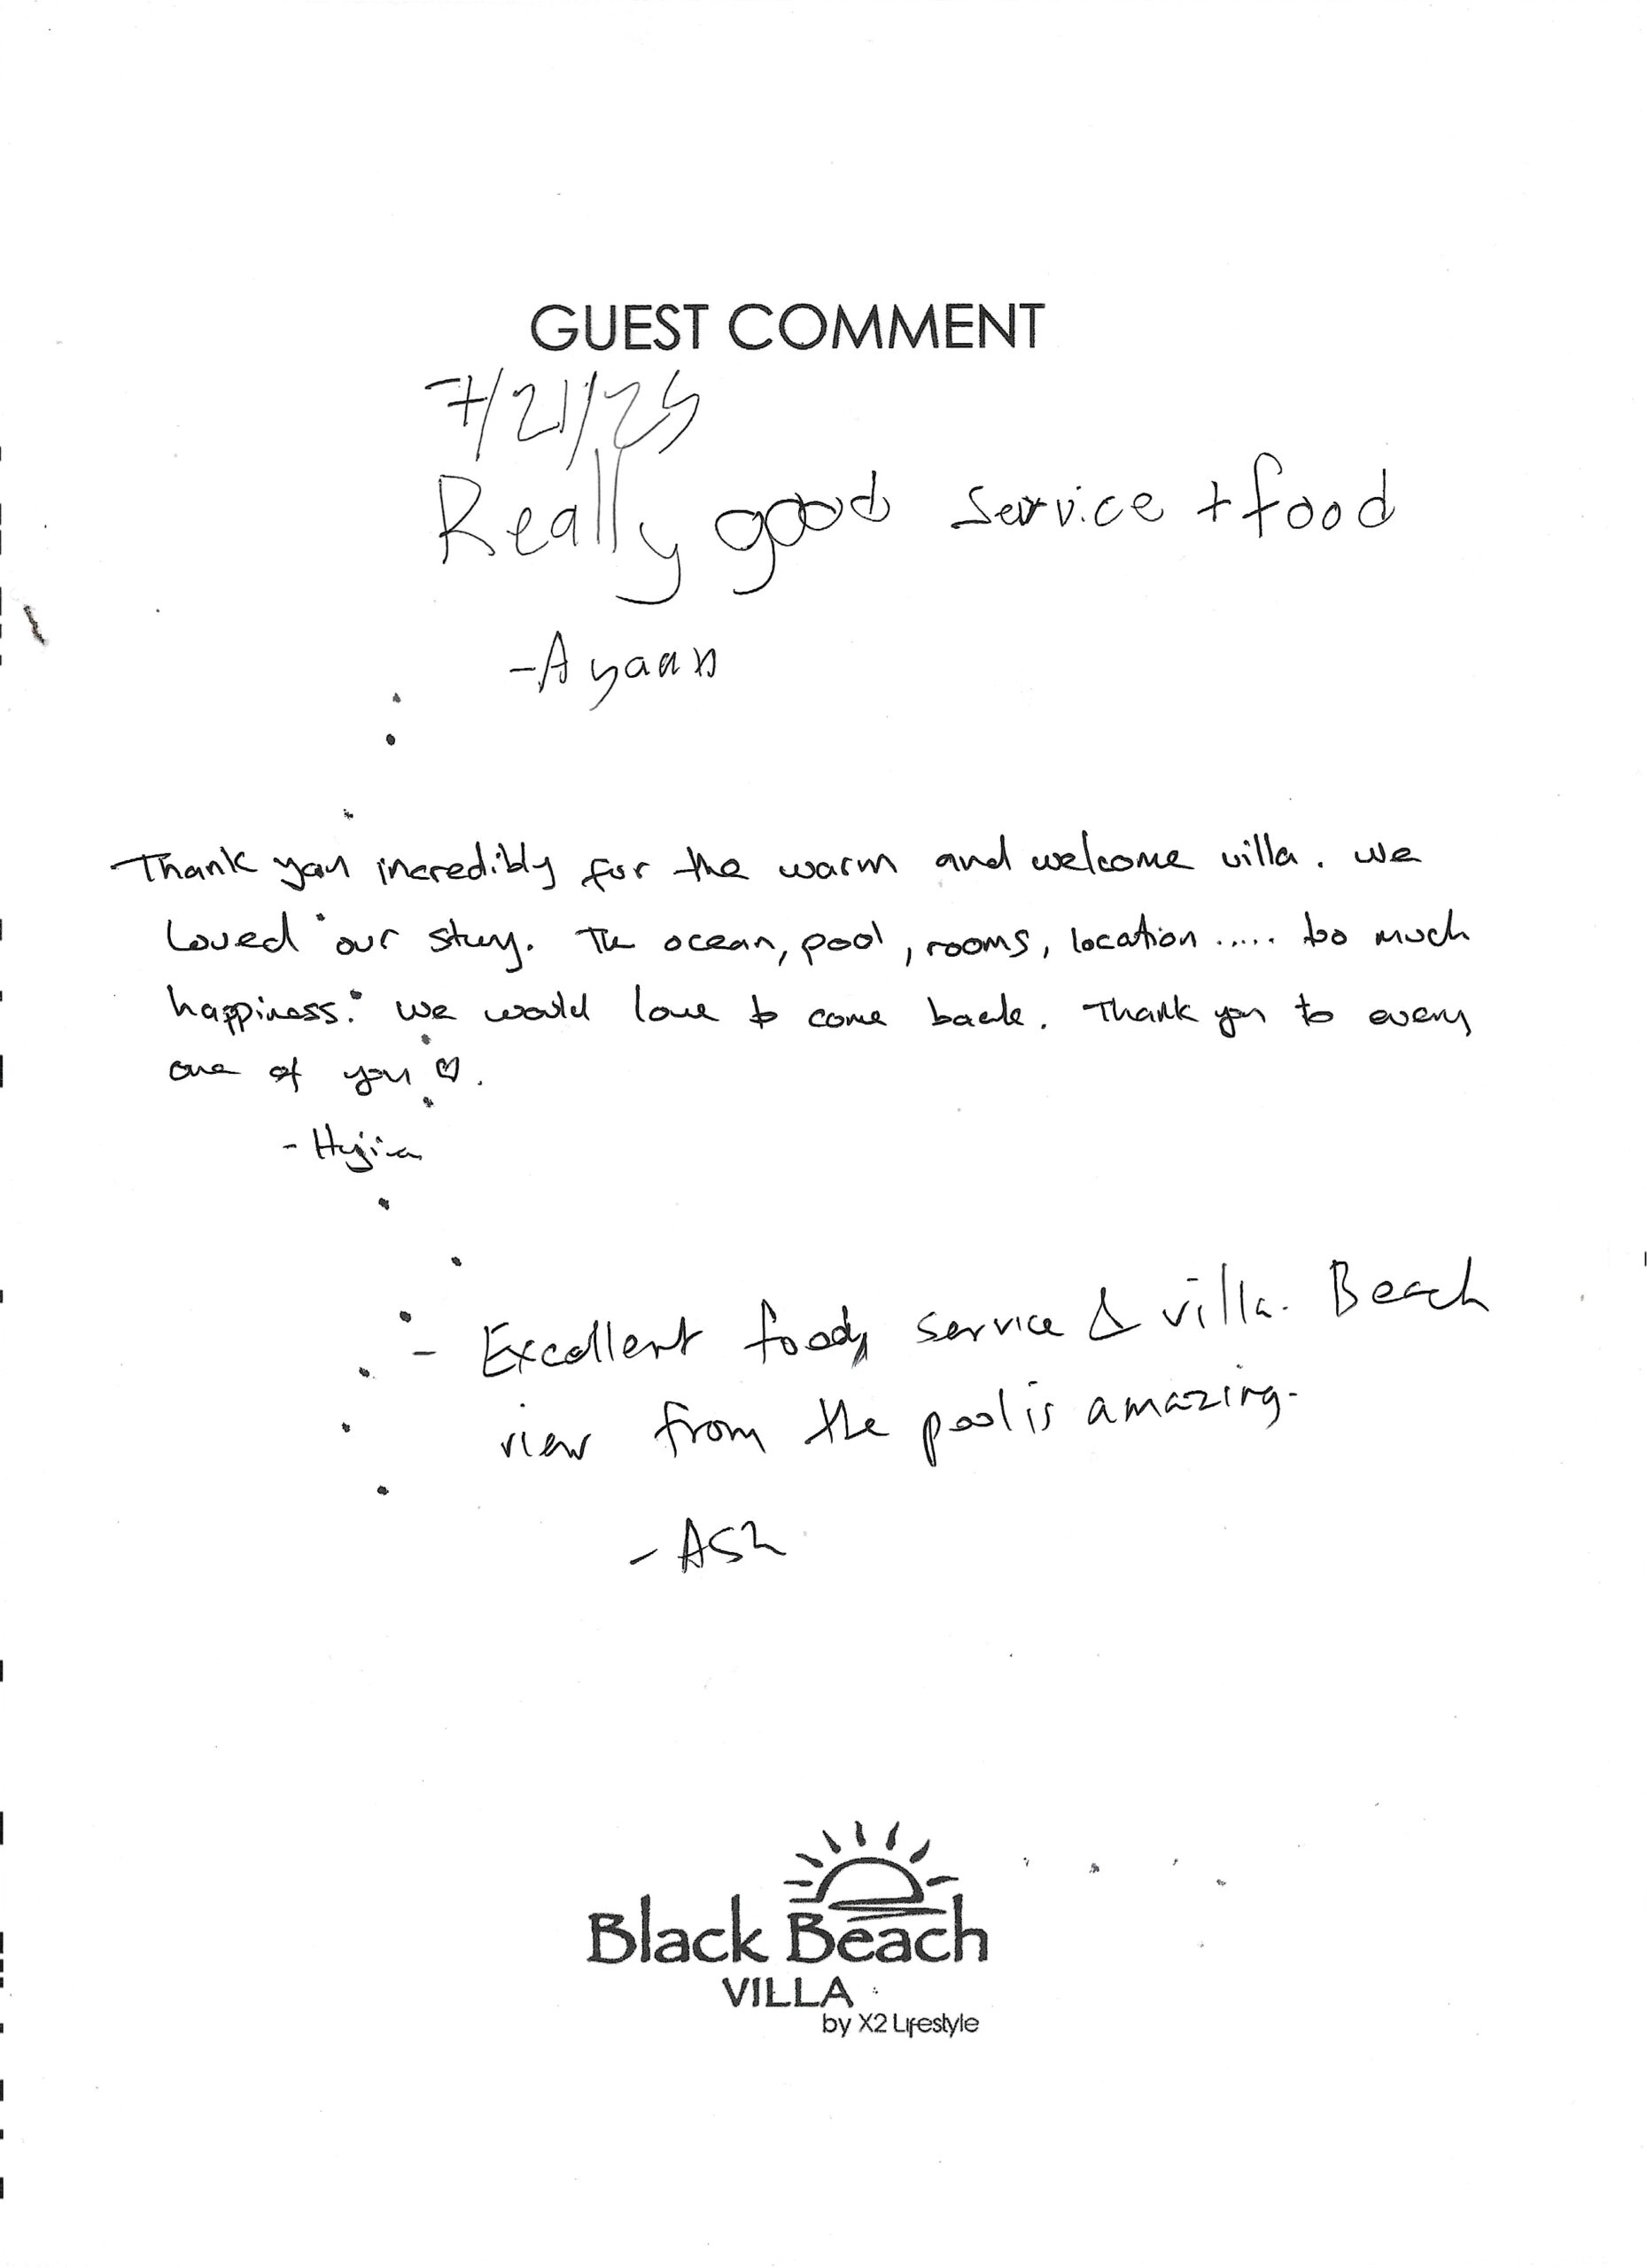 GUEST COMMENT
7/21/25
Really good service + food
-Ayaan
Thank you incredibly for the warm and welcome villa. We
loved our stay. The ocean, pool, rooms, location ..... too much
happiness. We would love to come back. Thank you to every
one of you ♡.
-
- Excellent food, service & villa. Beach
view from the pool is amazing.
- Ash
Black Beach
VILLA
by X2 Lifestyle